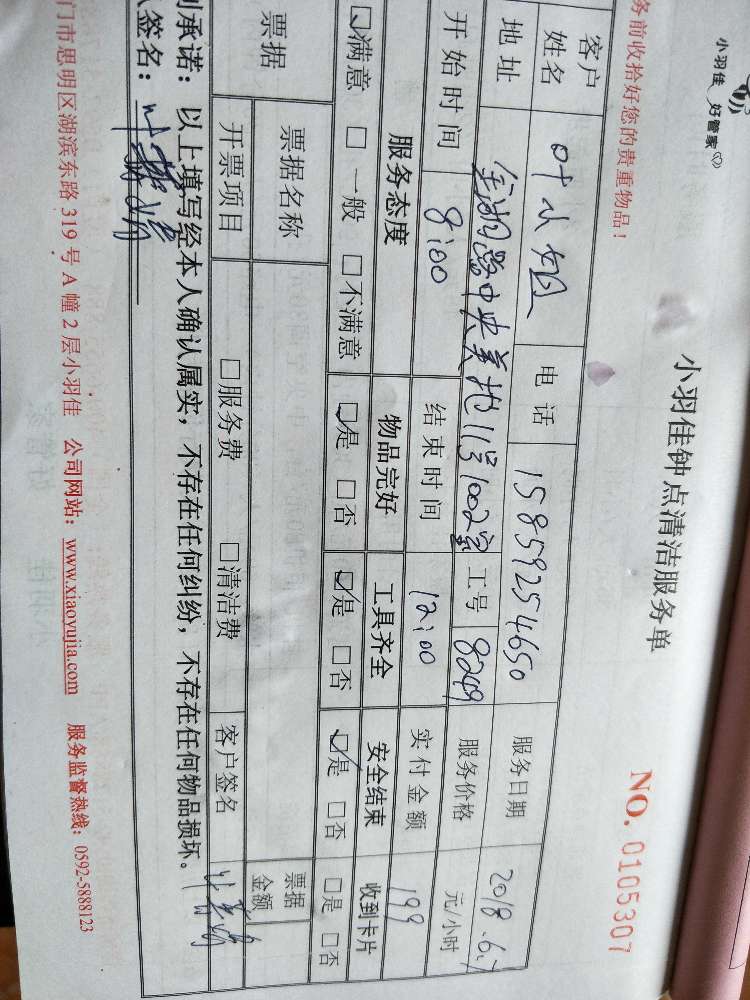 小羽佳 好管家
小羽佳钟点清洁服务单
务前收拾好您的贵重物品！
NO. 0105307
客户姓名 叶小姐 电话 15859254650 服务日期 2018.6.
地址 金湖路中央美地11号1002室 工号 8249 服务价格 元/小时
开始时间 8:00 结束时间 12:00 实付金额 199
服务态度 物品完好 工具齐全 安全结束 收到卡片
☑满意 □一般 □不满意 ☑是 □否 ☑是 □否 ☑是 □否 □是 □否
票据 票据名称 票据金额
开票项目 □服务费 □清洁费 客户签名
承诺：以上填写经本人确认属实，不存在任何纠纷，不存在任何物品损坏。
签名：
门市思明区湖滨东路 319 号 A 幢 2 层小羽佳 公司网站：www.xiaoyujia.com 服务监督热线：0592-5888123